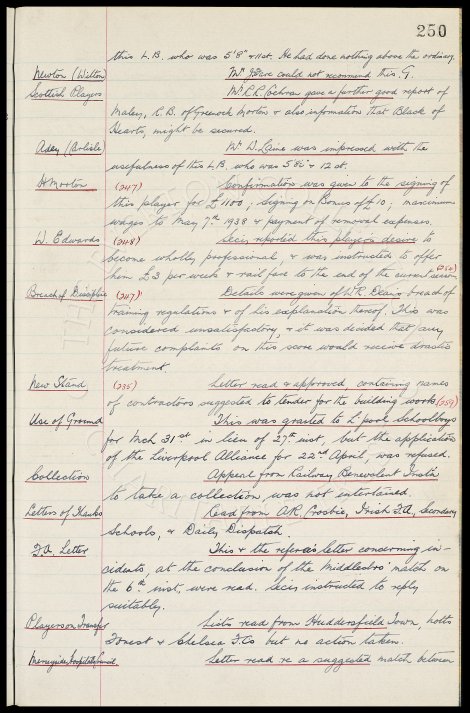 250
this L.B. who was 5'8" & 11st. He had done nothing above the ordinary.
Newton (Wilton) Mr Dare could not recommend this G.
Scottish Players Mr R.R. Cochran gave a further good report of
Maley, R.B. of Greenock Morton & also information that Black of
Hearts, might be secured.
Adey (Carlisle) Mr W. was impressed with the
usefulness of this L.B. who was 5'8½" & 12 st.
H Morton (247) Confirmation was given to the signing of
this player for £1100, Signing on Bonus of £10, maximum
wages to May 7th 1938 & payment of removal expenses.
W. Edwards (248) Secy reported this players desire to
become wholly professional, & was instructed to offer
him £3 per week & rail fare to the end of the current season (252)
Breach of Discipline (247) Details were given of W.R. Dean's breach of
training regulations & of his explanation thereof. This was
considered unsatisfactory, & it was decided that any
future complaints on this score would receive drastic
treatment.
New Stand (235) Letter read & approved, containing names
of contractors suggested to tender for the building works (259)
Use of Ground This was granted to L'pool Schoolboys
for Mch 31st in lieu of 27th inst, but the application
of the Liverpool Alliance for 22nd April, was refused.
Collection Appeal from Railway Benevolent Instn
to take a collection, was not entertained.
Letters of Thanks Read from Crosbie, Irish F.A., Secondary
Schools, & Daily Dispatch.
F.A. Letter This & the referee's letter concerning in-
cidents at the conclusion of the Middlesbro' match on
the 6th inst, were read. Secy instructed to reply
suitably.
Players on Transfer Lists read from Huddersfield Town, Notts
Forest & Chelsea F.Cs but no action taken.
Merseyside Hospitals Council Letter read re a suggested match between